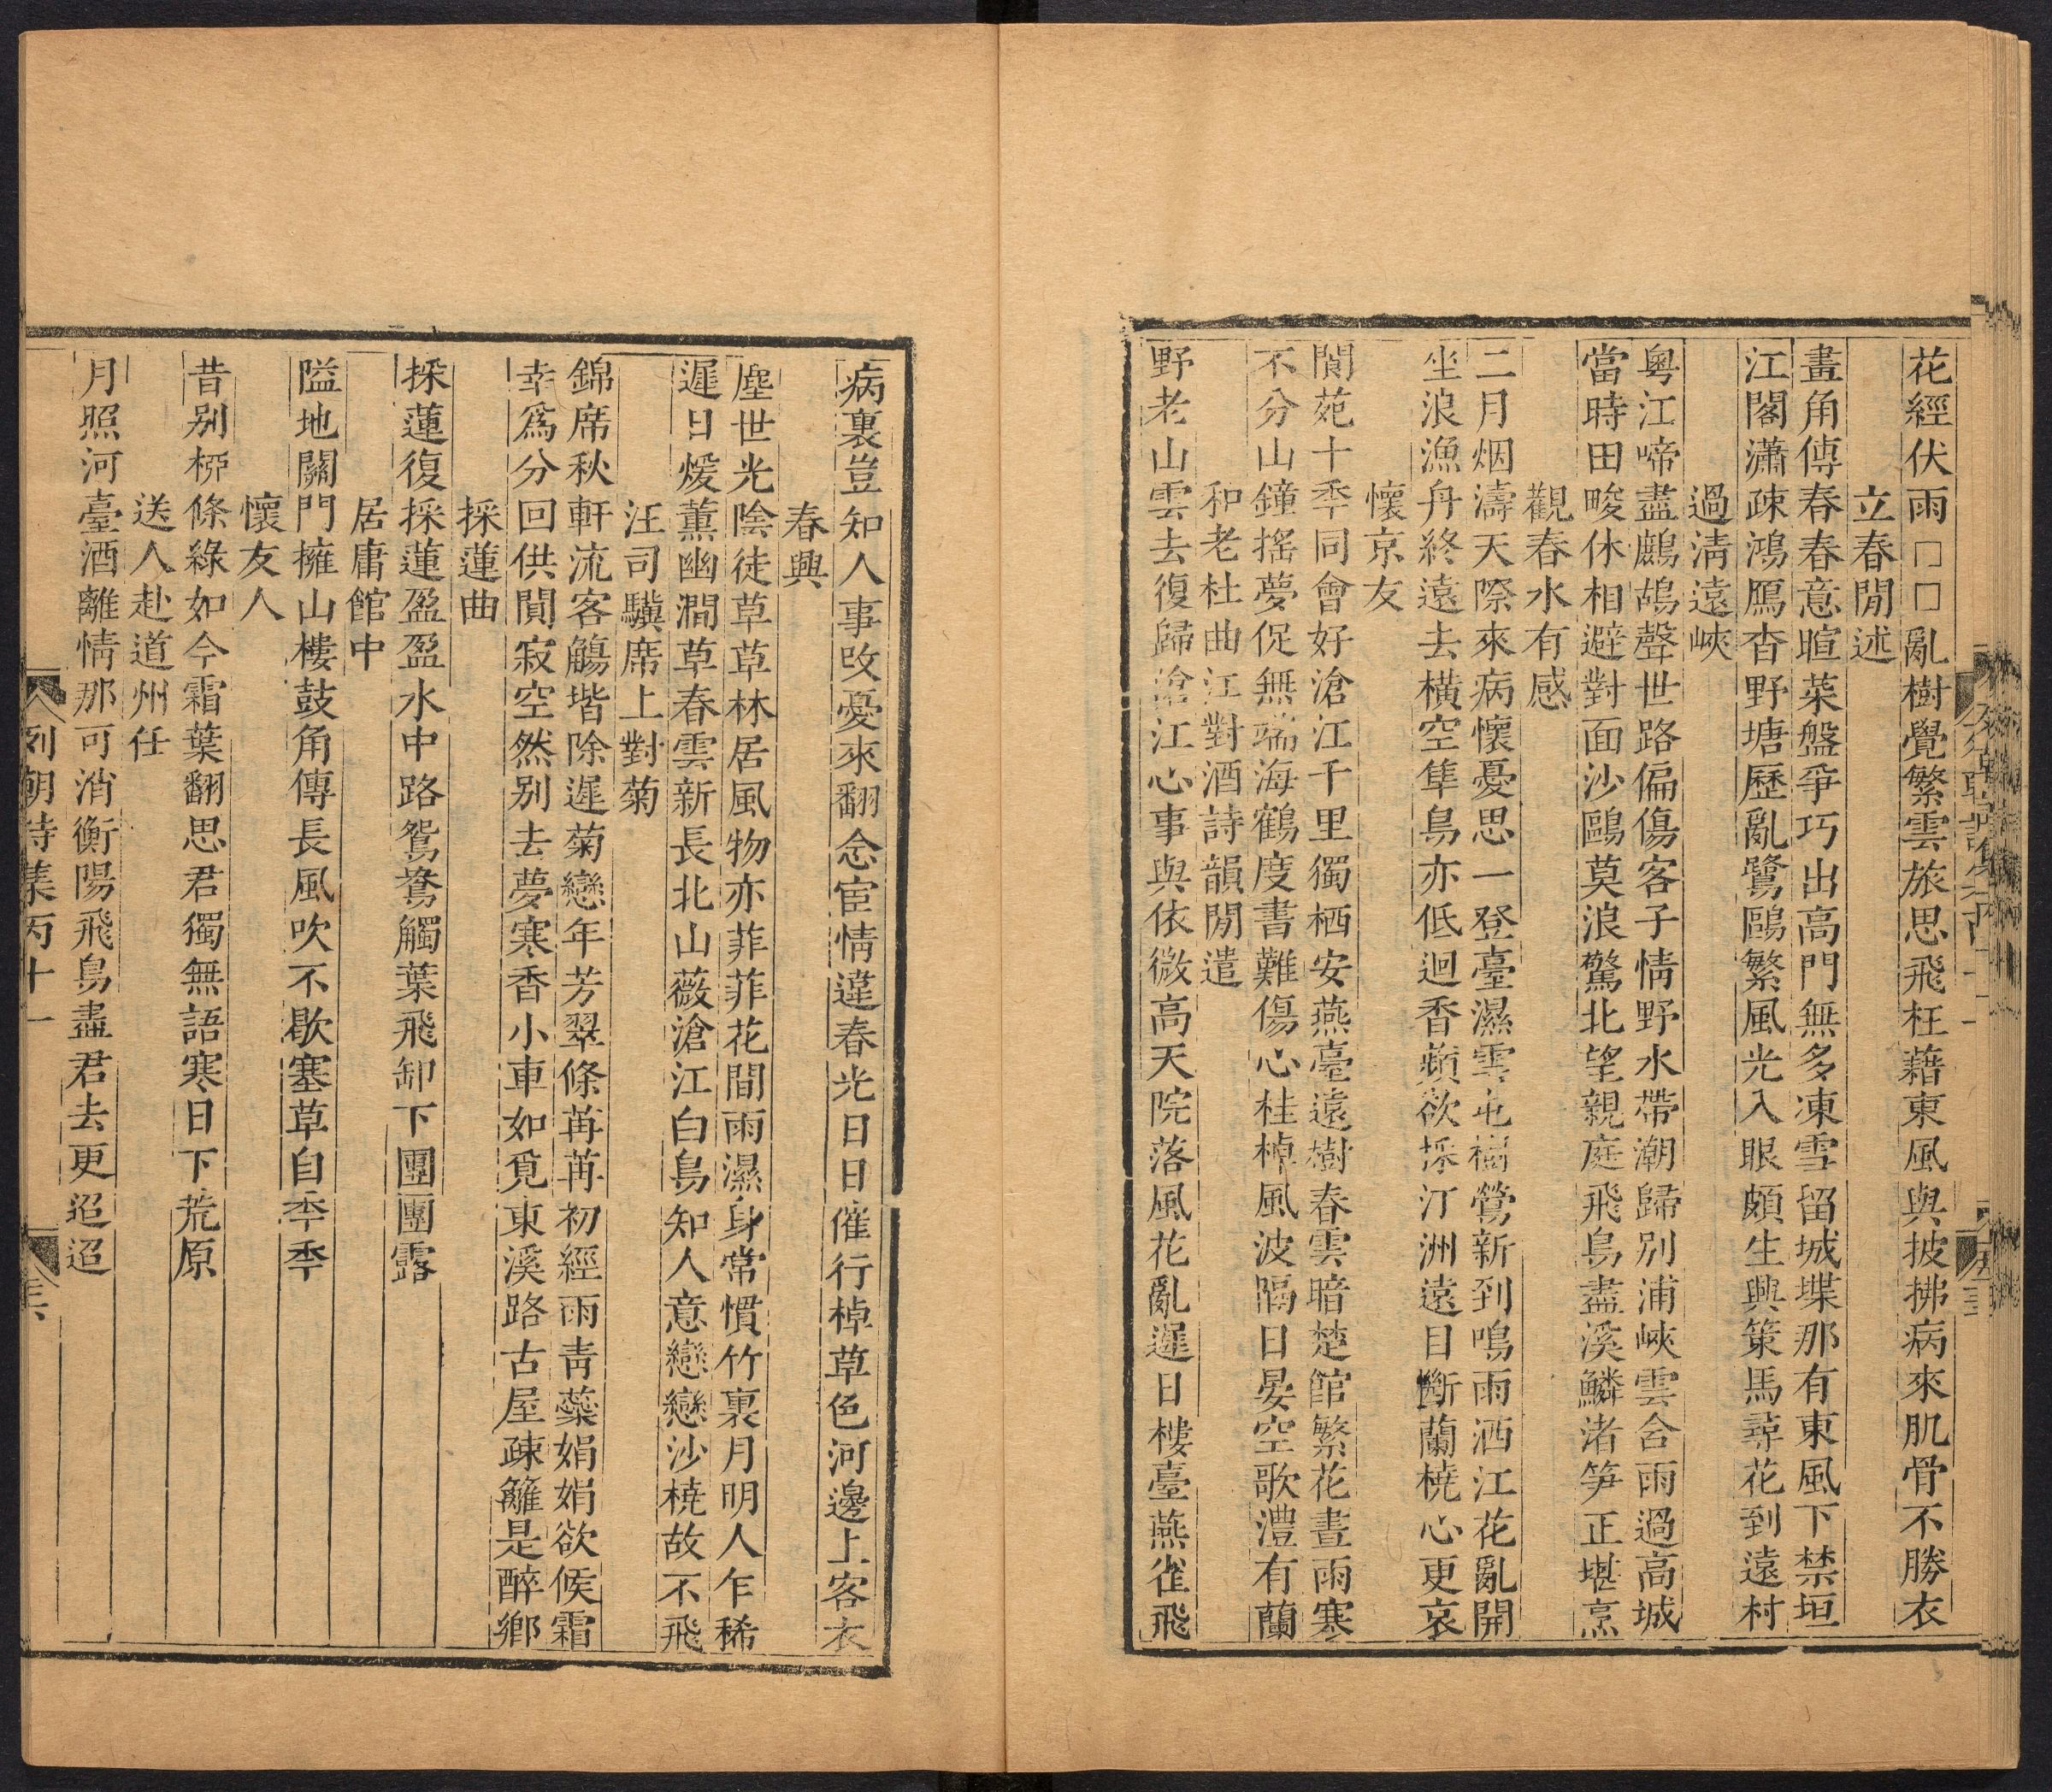 花經伏雨□□亂樹覺繁雲旅思飛枉藉東風與披拂病來肌骨不勝衣
立春閒述
畫角傳春春意暄菜盤爭巧出高門無多凍雪留城堞那有東風下禁垣
江閣瀟疎鴻鴈杳野塘歷亂鷺鷗繁風光入眼頗生興策馬尋花到遠村
過淸遠峽
粤江啼盡鷓鴣聲世路偏傷客子情野水帶潮歸別浦峽雲合雨過高城
當時田畯休相避對面沙鷗莫浪驚北望親庭飛鳥盡溪鱗渚笋正堪烹
觀春水有感
二月烟濤天際來病懷憂思一登臺濕雲屯樹鶯新到鳴雨洒江花亂開
坐浪漁舟終遠去橫空隼鳥亦低迴香蘋欲採汀洲遠目斷蘭橈心更哀
懷京友
閬苑十秊同會好滄江千里獨栖安燕臺遠樹春雲暗楚館繁花晝雨寒
不分山鐘搖夢促無端海鶴度書難傷心桂棹風波隔日晏空歌澧有蘭
和老杜曲江對酒詩韻閒遣
野老山雲去復歸滄江心事與依微高天院落風花亂遲日樓臺燕雀飛
病裏豈知人事攺憂來翻念宦情違春光日日催行棹草色河邊上客衣
春興
塵世光陰徒草草林居風物亦菲菲花間雨濕身常慣竹裏月明人乍稀
遲日煖薰幽澗草春雲新長北山薇滄江白鳥知人意戀戀沙橈故不飛
汪司驥席上對菊
錦席秋軒流客觴堦除遲菊戀年芳翠條苒苒初經雨靑蘂娟娟欲候霜
幸爲分回供閴寂空然別去夢寒香小車如覓東溪路古屋疎籬是醉鄉
採蓮曲
採蓮復採蓮盈盈水中路鴛鴦觸葉飛卸下團團露
居庸館中
隘地關門擁山樓鼓角傳長風吹不歇塞草自秊秊
懷友人
昔別桺條綠如今霜葉翻思君獨無語寒日下荒原
送人赴道州任
月照河臺酒離情那可消衡陽飛鳥盡君去更迢迢
列朝詩集丙十一